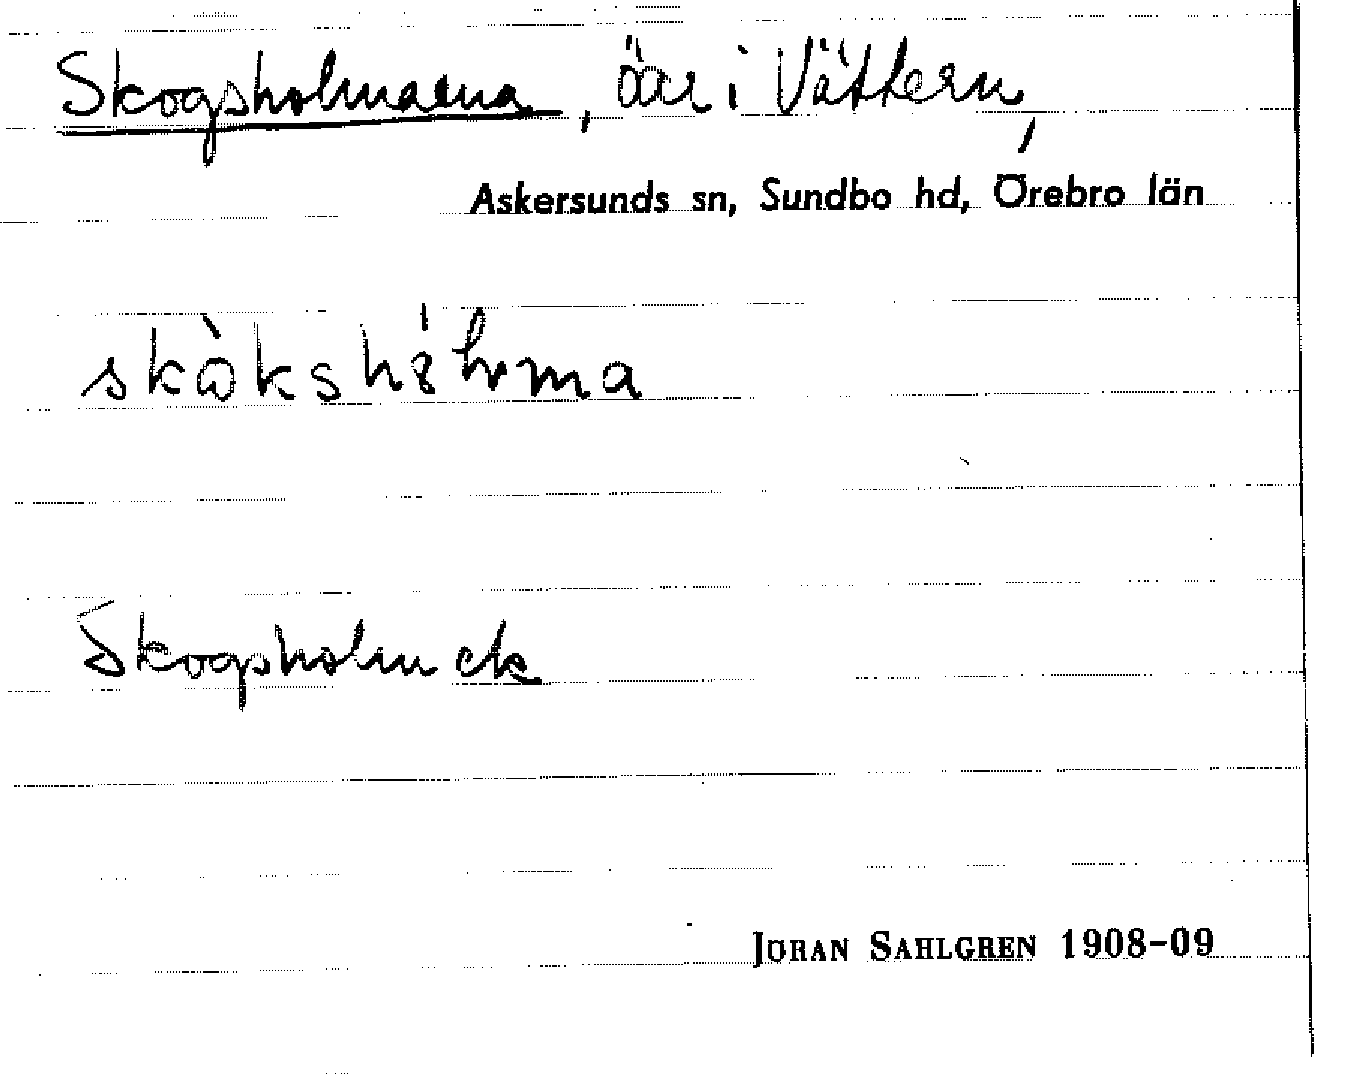 Skogsholmarna, öar i Vättern,
Askersunds sn, Sundbo hd, Örebro län
skògkshólma
Skogsholm ek
JÖRAN SAHLGREN 1908-09